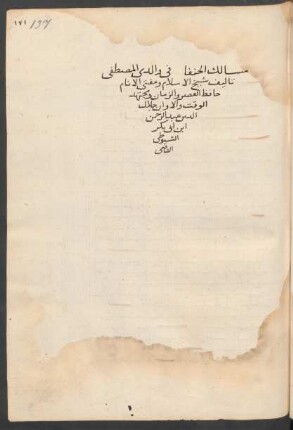 ١٢١ 197
مسالك الحنفا في والدي المصطفى
تاليف شيخ الاسلام ومفتي الانام
حافظ العصر والزمان ومجتهد
الوقت والاوان جلال
الدين عبد الرحمن
ابن ابي بكر
السيوطي